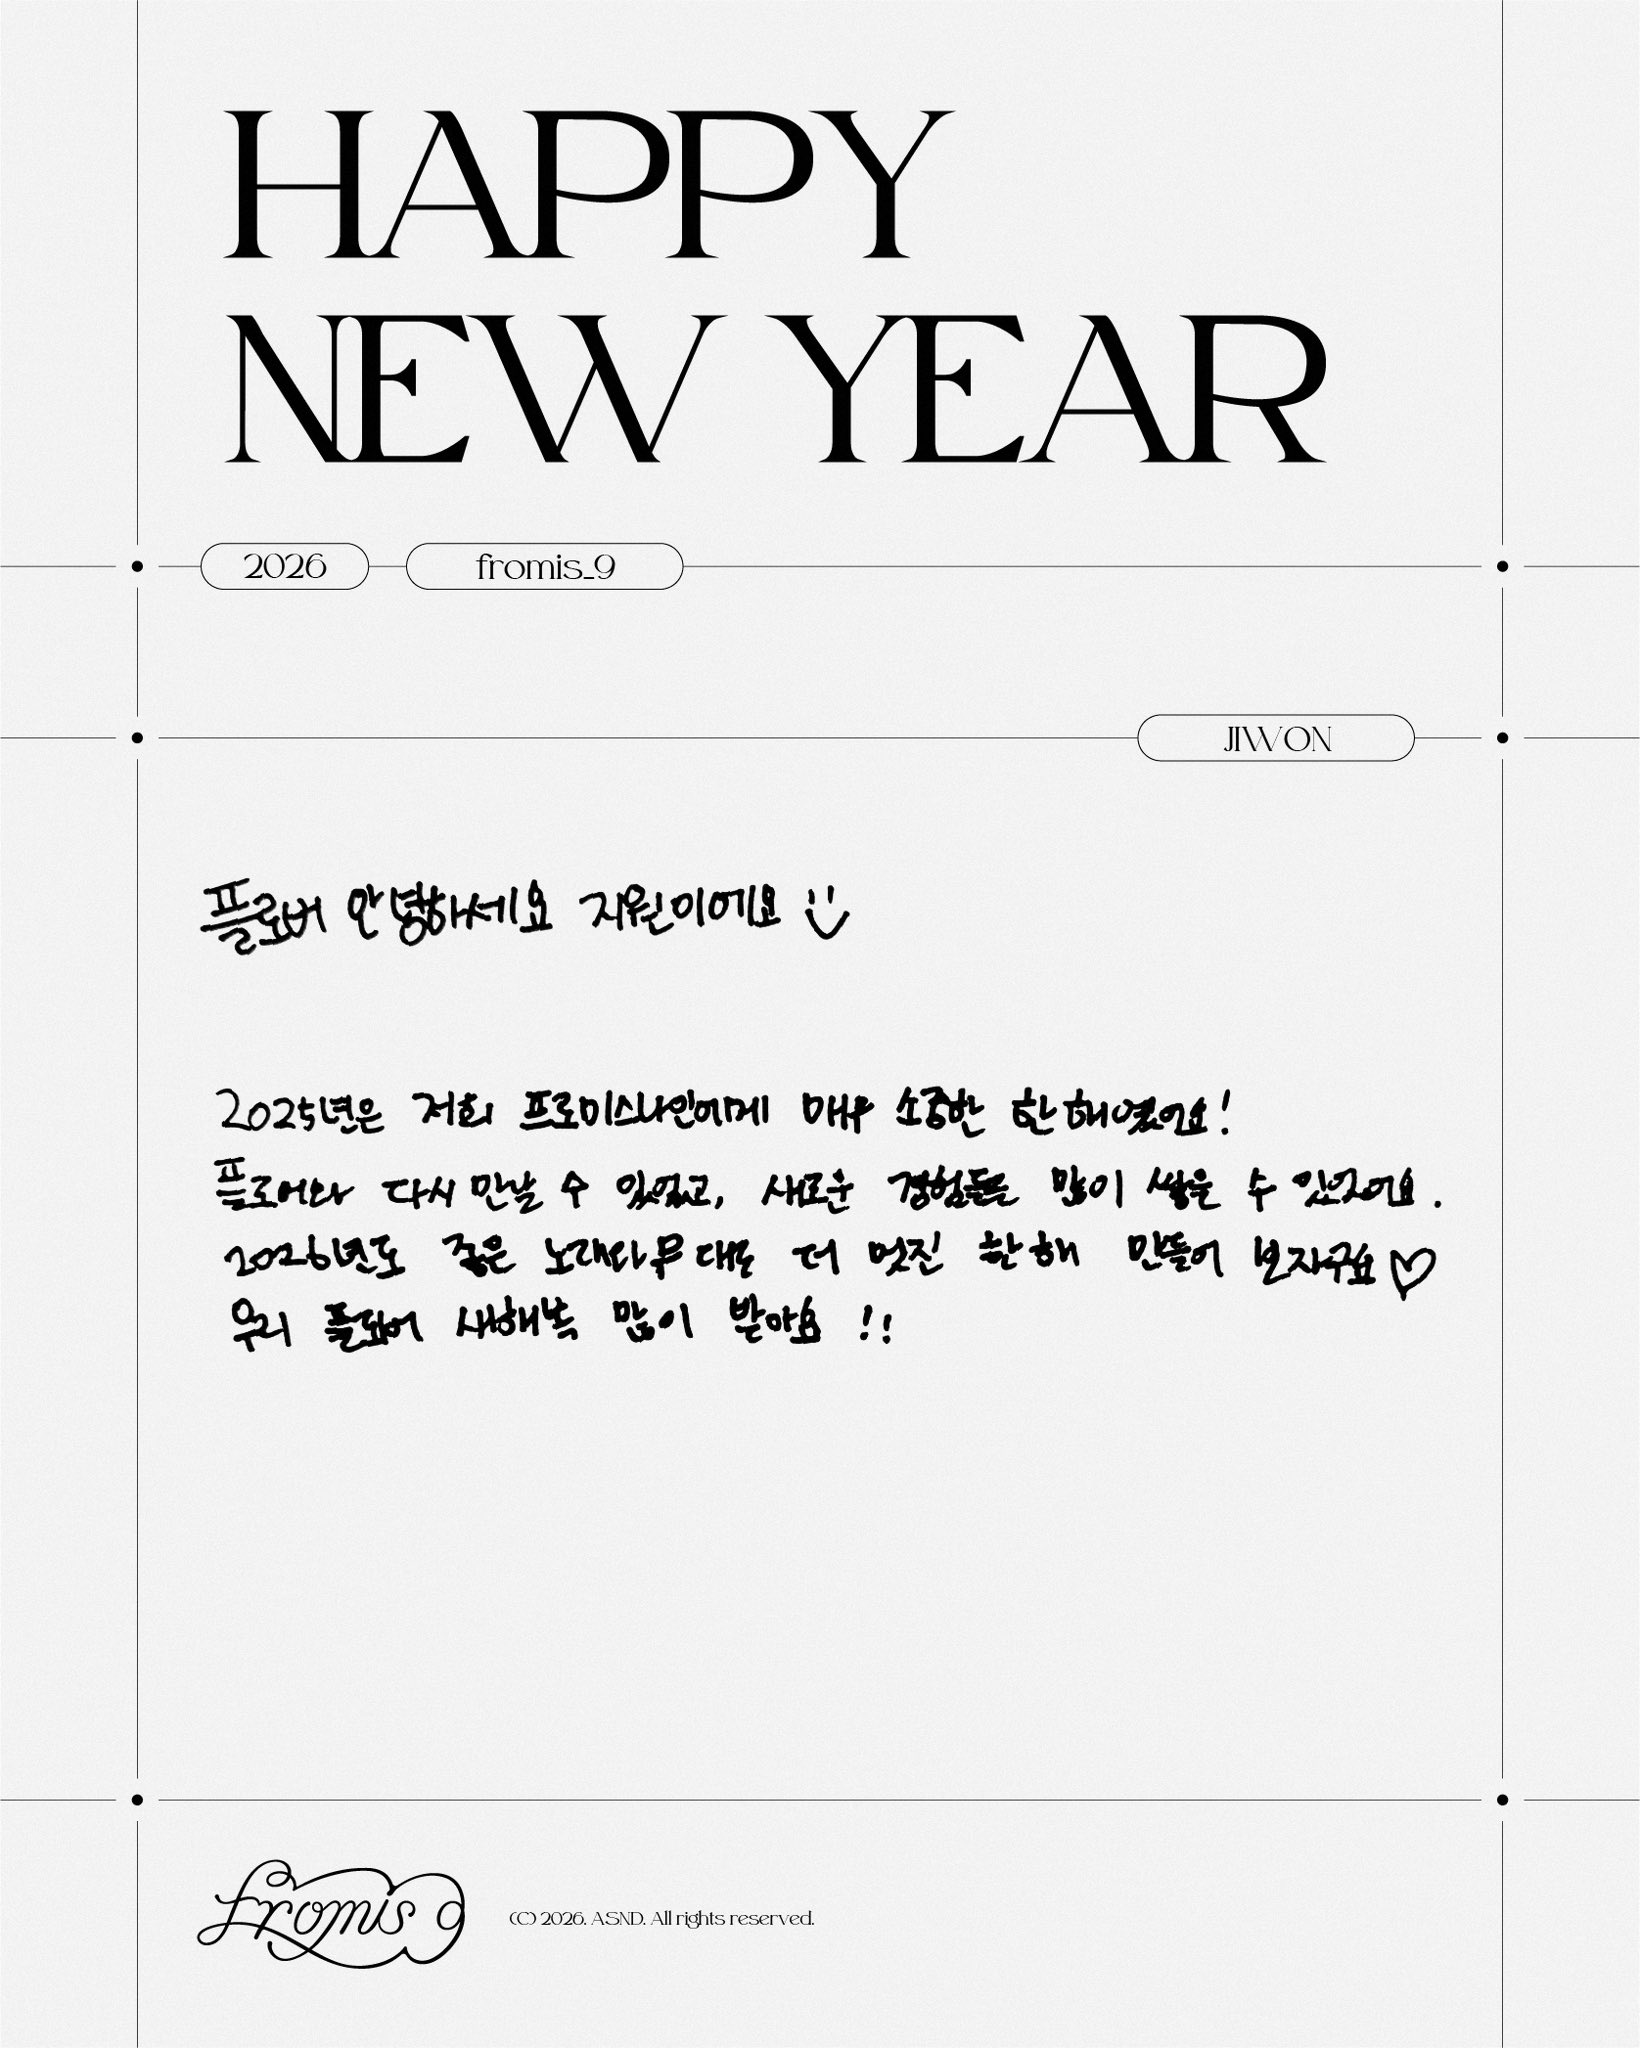 HAPPY
NEW YEAR
2026 fromis_9
JIWON
플로버 안녕하세요 지원이에요
2025년은 저희 프로미스나인에게 매우 소중한 한해였어요!
플로버와 다시 만날 수 있었고, 새로운 경험들을 많이 쌓을 수 있었어요.
2026년도 좋은 노래와 무대로 더 멋진 한해 만들어 보자구요♡
우리 플로버 새해복 많이 받아요!!
fromis 9
(C) 2026. ASND. All rights reserved.